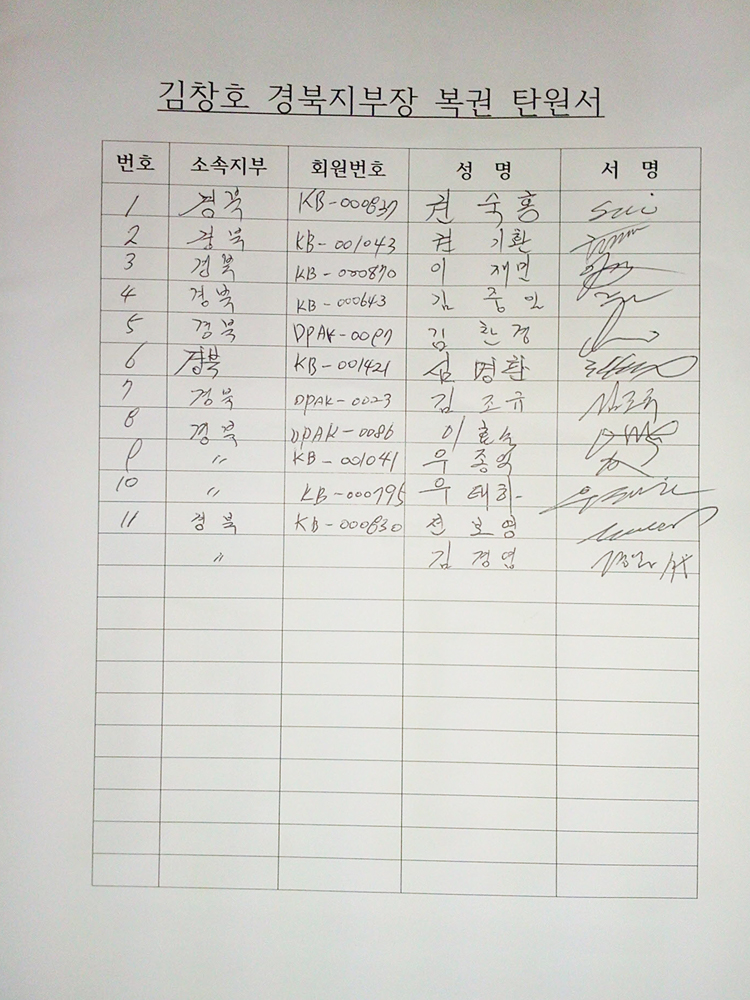 김창호 경북지부장 복권 탄원서
번호 소속지부 회원번호 성 명 서 명
1 경북 KB-000837 권 숙홍
2 경북 KB-001043 권 기환
3 경북 KB-000870 이 재민
4 경북 KB-000643 김 중인
5 경북 DPAK-0097 김 환경
6 경북 KB-001421 심 명환
7 경북 DPAK-0023 김 조규
8 경북 DPAK-0086 이
9 〃 KB-001041 우 종익
10 〃 KB-000795 우 태하
11 경북 KB-000830 전 보영
〃 김 경엽